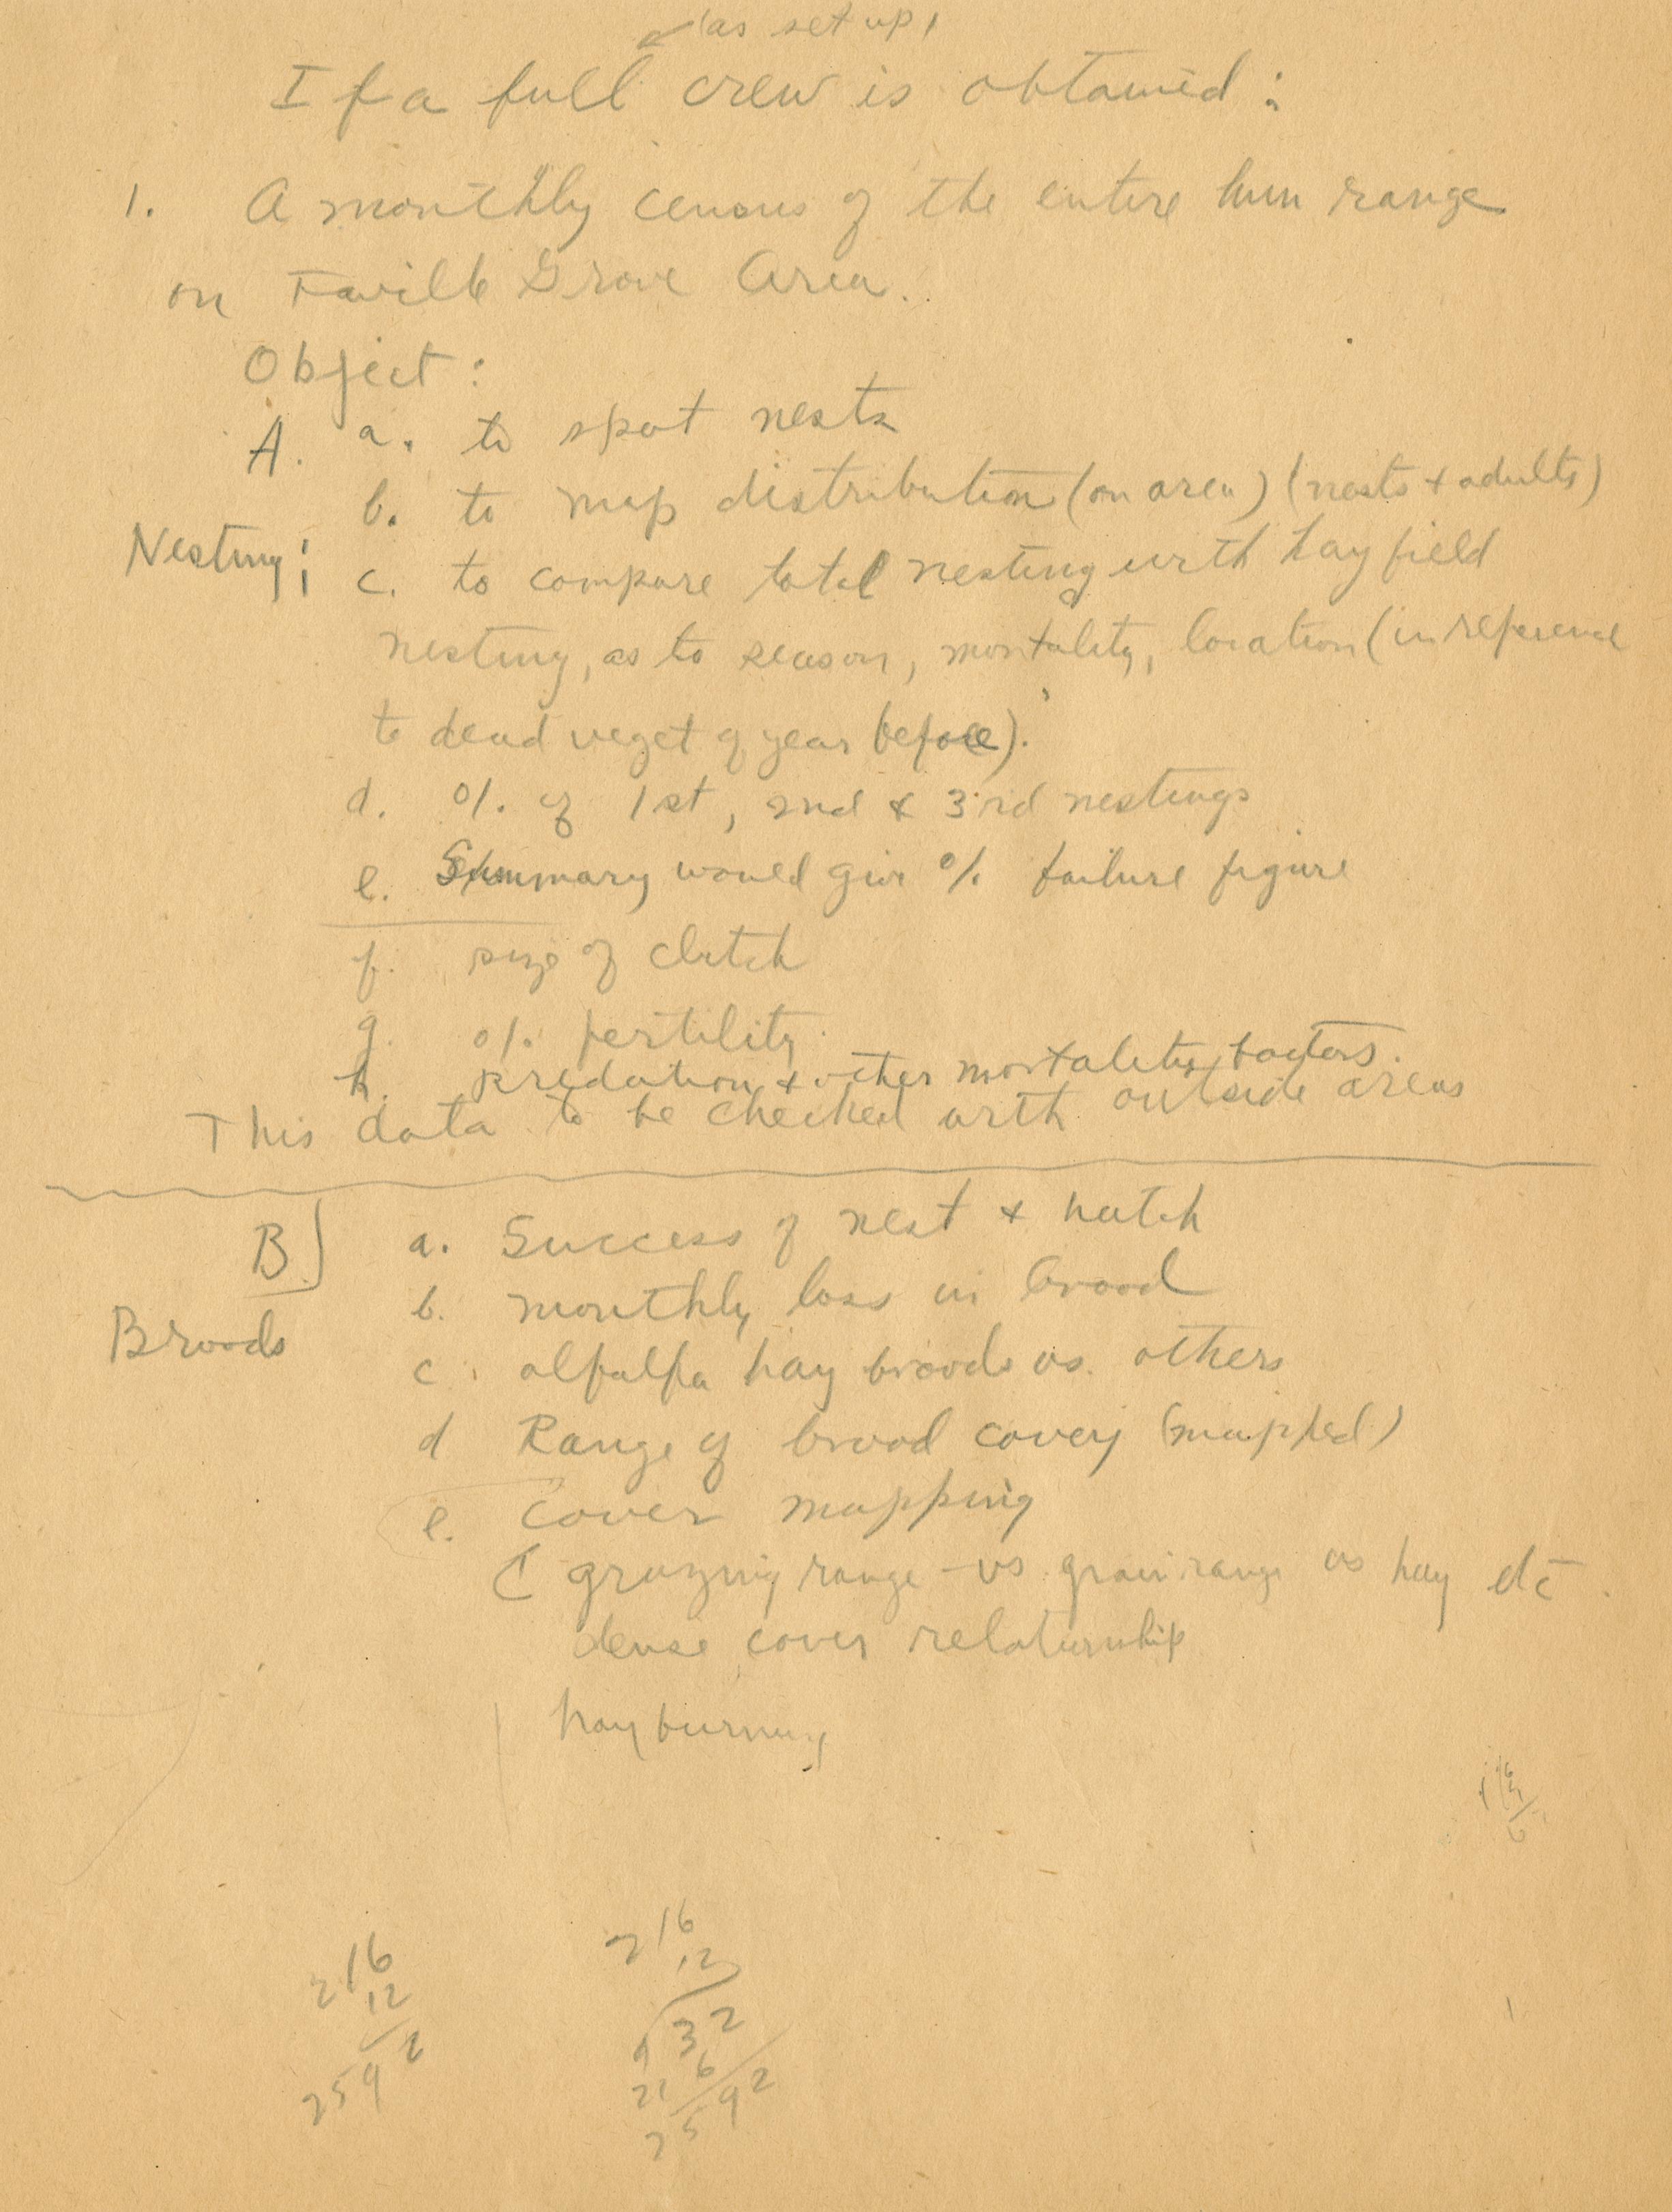 (as set up)
If a full crew is obtained:
1. A monthly census of the entire hun range
on Faville Grove Area.
Object:
A. a. to spot nests
b. to map distribution (on area) (nests + adults)
Nesting:
c. to compare total nesting with hay field
nesting, as to season, mortality, location (in reference
to dead veget of year before).
d. % of 1st, 2nd & 3rd nestings
e. Summary would give % failure figure
f. size of clutch
g. % fertility
h. predation + other mortality factors.
This data to be checked with outside areas
B] a. Success of nest + hatch
b. monthly loss in brood
Broods
c. alfalfa hay broods vs. others
d Range of brood covey (mapped)
e. Cover mapping
( grazing range - vs grain range vs hay etc.
dense cover relationship
hay burning
216
12
2592
216
12
432
216
2592